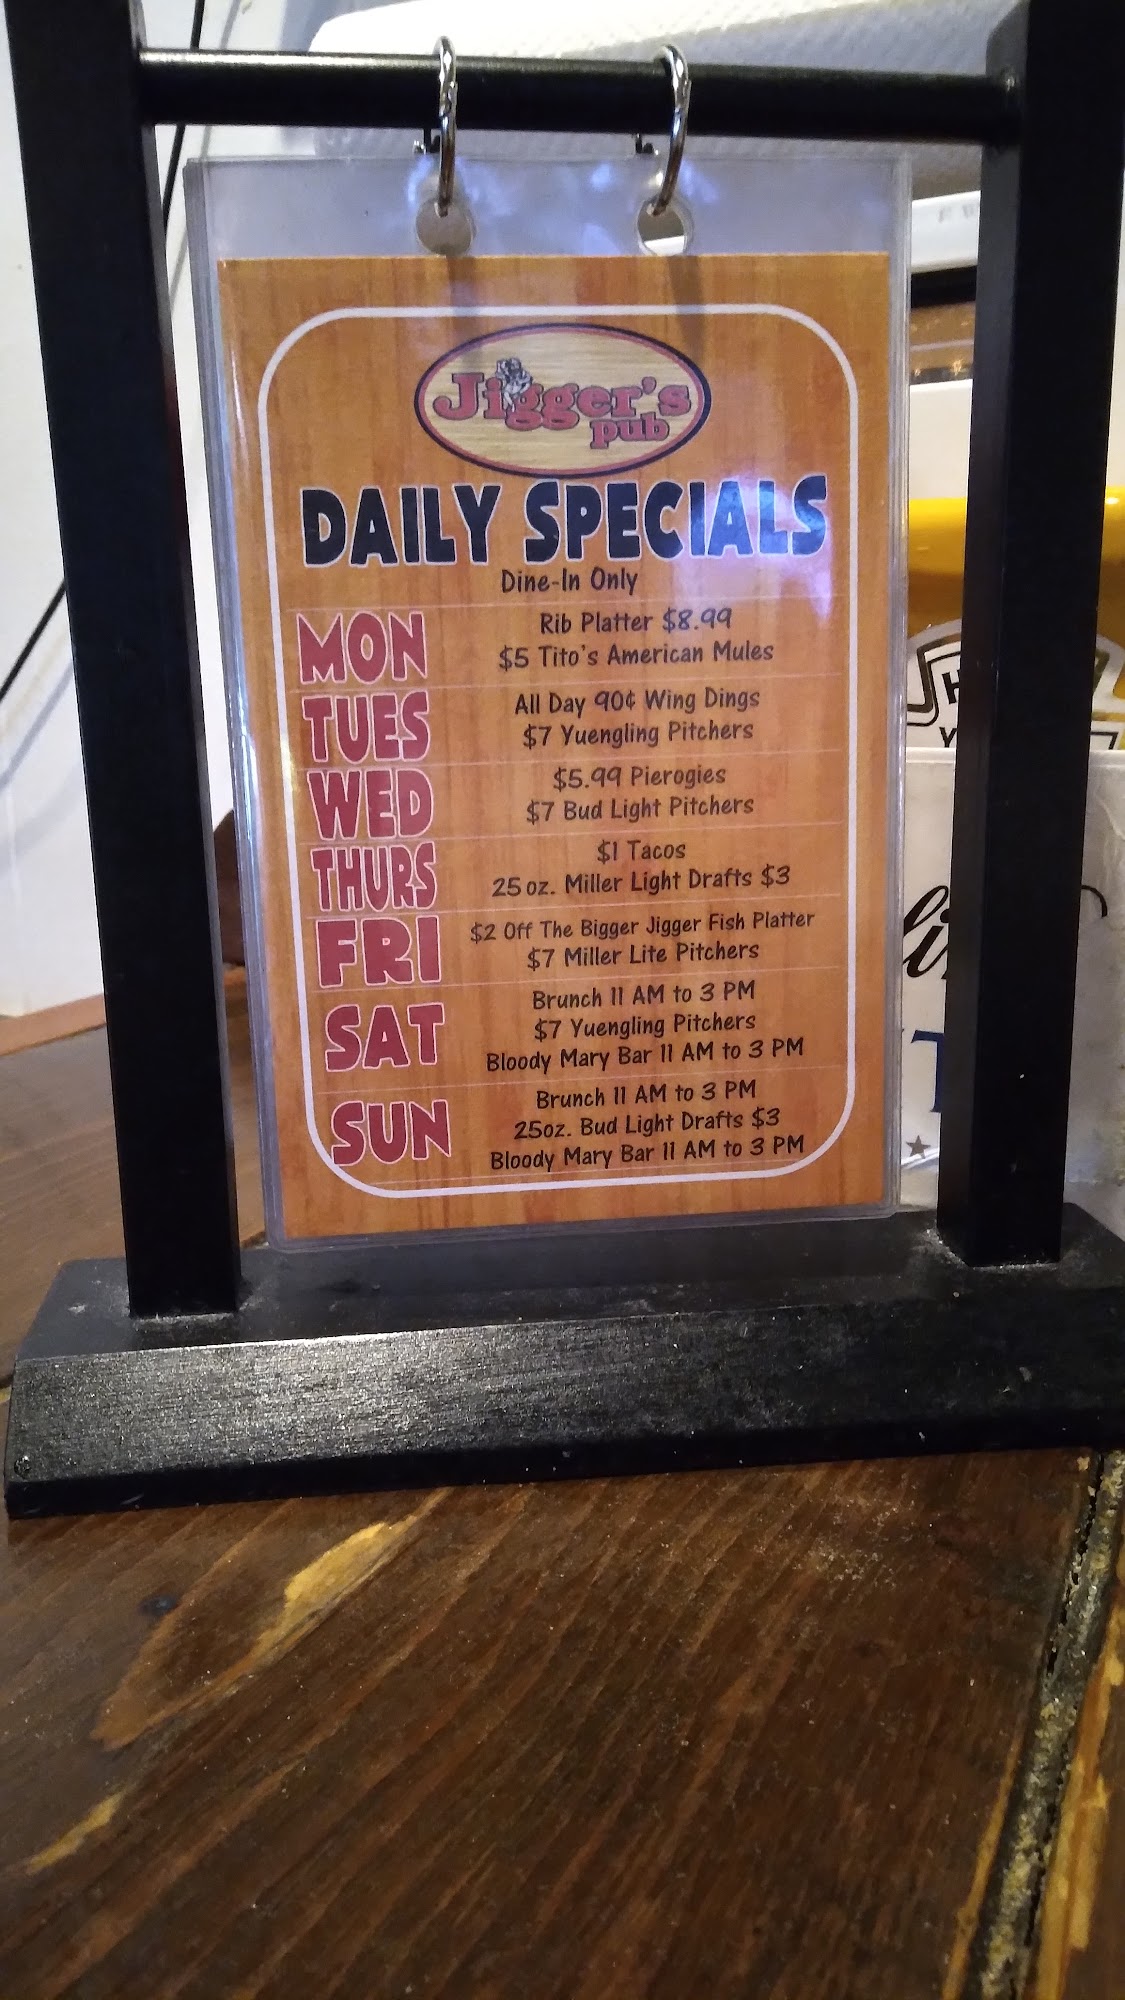 Jigger's
pub
DAILY SPECIALS
Dine-In Only
MON
Rib Platter $8.99
$5 Tito's American Mules
TUES
All Day 90¢ Wing Dings
$7 Yuengling Pitchers
WED
$5.99 Pierogies
$7 Bud Light Pitchers
THURS
$1 Tacos
25 oz. Miller Light Drafts $3
FRI
$2 Off The Bigger Jigger Fish Platter
$7 Miller Lite Pitchers
SAT
Brunch 11 AM to 3 PM
$7 Yuengling Pitchers
Bloody Mary Bar 11 AM to 3 PM
SUN
Brunch 11 AM to 3 PM
25oz. Bud Light Drafts $3
Bloody Mary Bar 11 AM to 3 PM